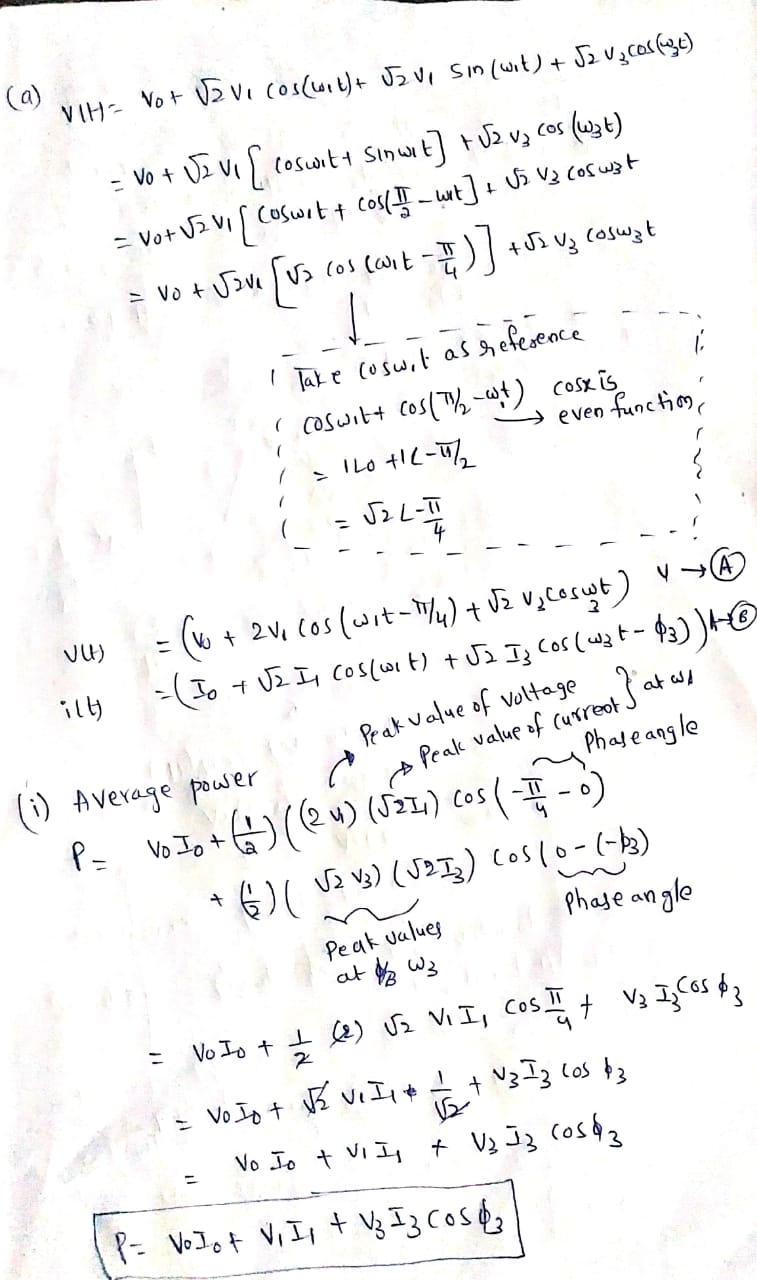 (a) V(t)= V0+ √2 V1 cos(w1t)+ √2 V1 sin(w1t) + √2 V3 cos(w3t)
= V0 + √2 V1 [ cosw1t + sinw1t] + √2 V3 cos (w3t)
= V0+ √2 V1 [ cosw1t + cos(π/2 - w1t] + √2 V3 cosw3t
= V0 + √2V1 [√2 cos (w1t - π/4)] + √2 V3 cosw3t
Take cosw1t as reference
cosw1t + cos(π/2 - w1t) → cosx is even function
= 1∠0 + 1∠-π/2
= √2 ∠-π/4
V(t) = (V0 + 2V1 cos(w1t - π/4) + √2 V3 cosw3t) V → (A)
i(t) = (I0 + √2 I1 cos(w1t) + √2 I3 cos(w3t - ϕ3)) A → (B)
Peak value of voltage
Peak value of current } at w1
(i) Average power
Phase angle
P= V0I0 + (1/2) ((2V1) (√2I1) cos(-π/4 - 0)
+ (1/2) ( √2 V3) (√2I3) cos(0 - (-ϕ3)
Peak values
at w3
Phase angle
= V0I0 + 1/2 (2) √2 V1 I1 cos π/4 + V3 I3 cos ϕ3
= V0I0 + √2 V1I1 * 1/√2 + V3I3 cos ϕ3
= V0 I0 + V1 I1 + V3 I3 cosϕ3
P= V0I0 + V1I1 + V3I3 cosϕ3